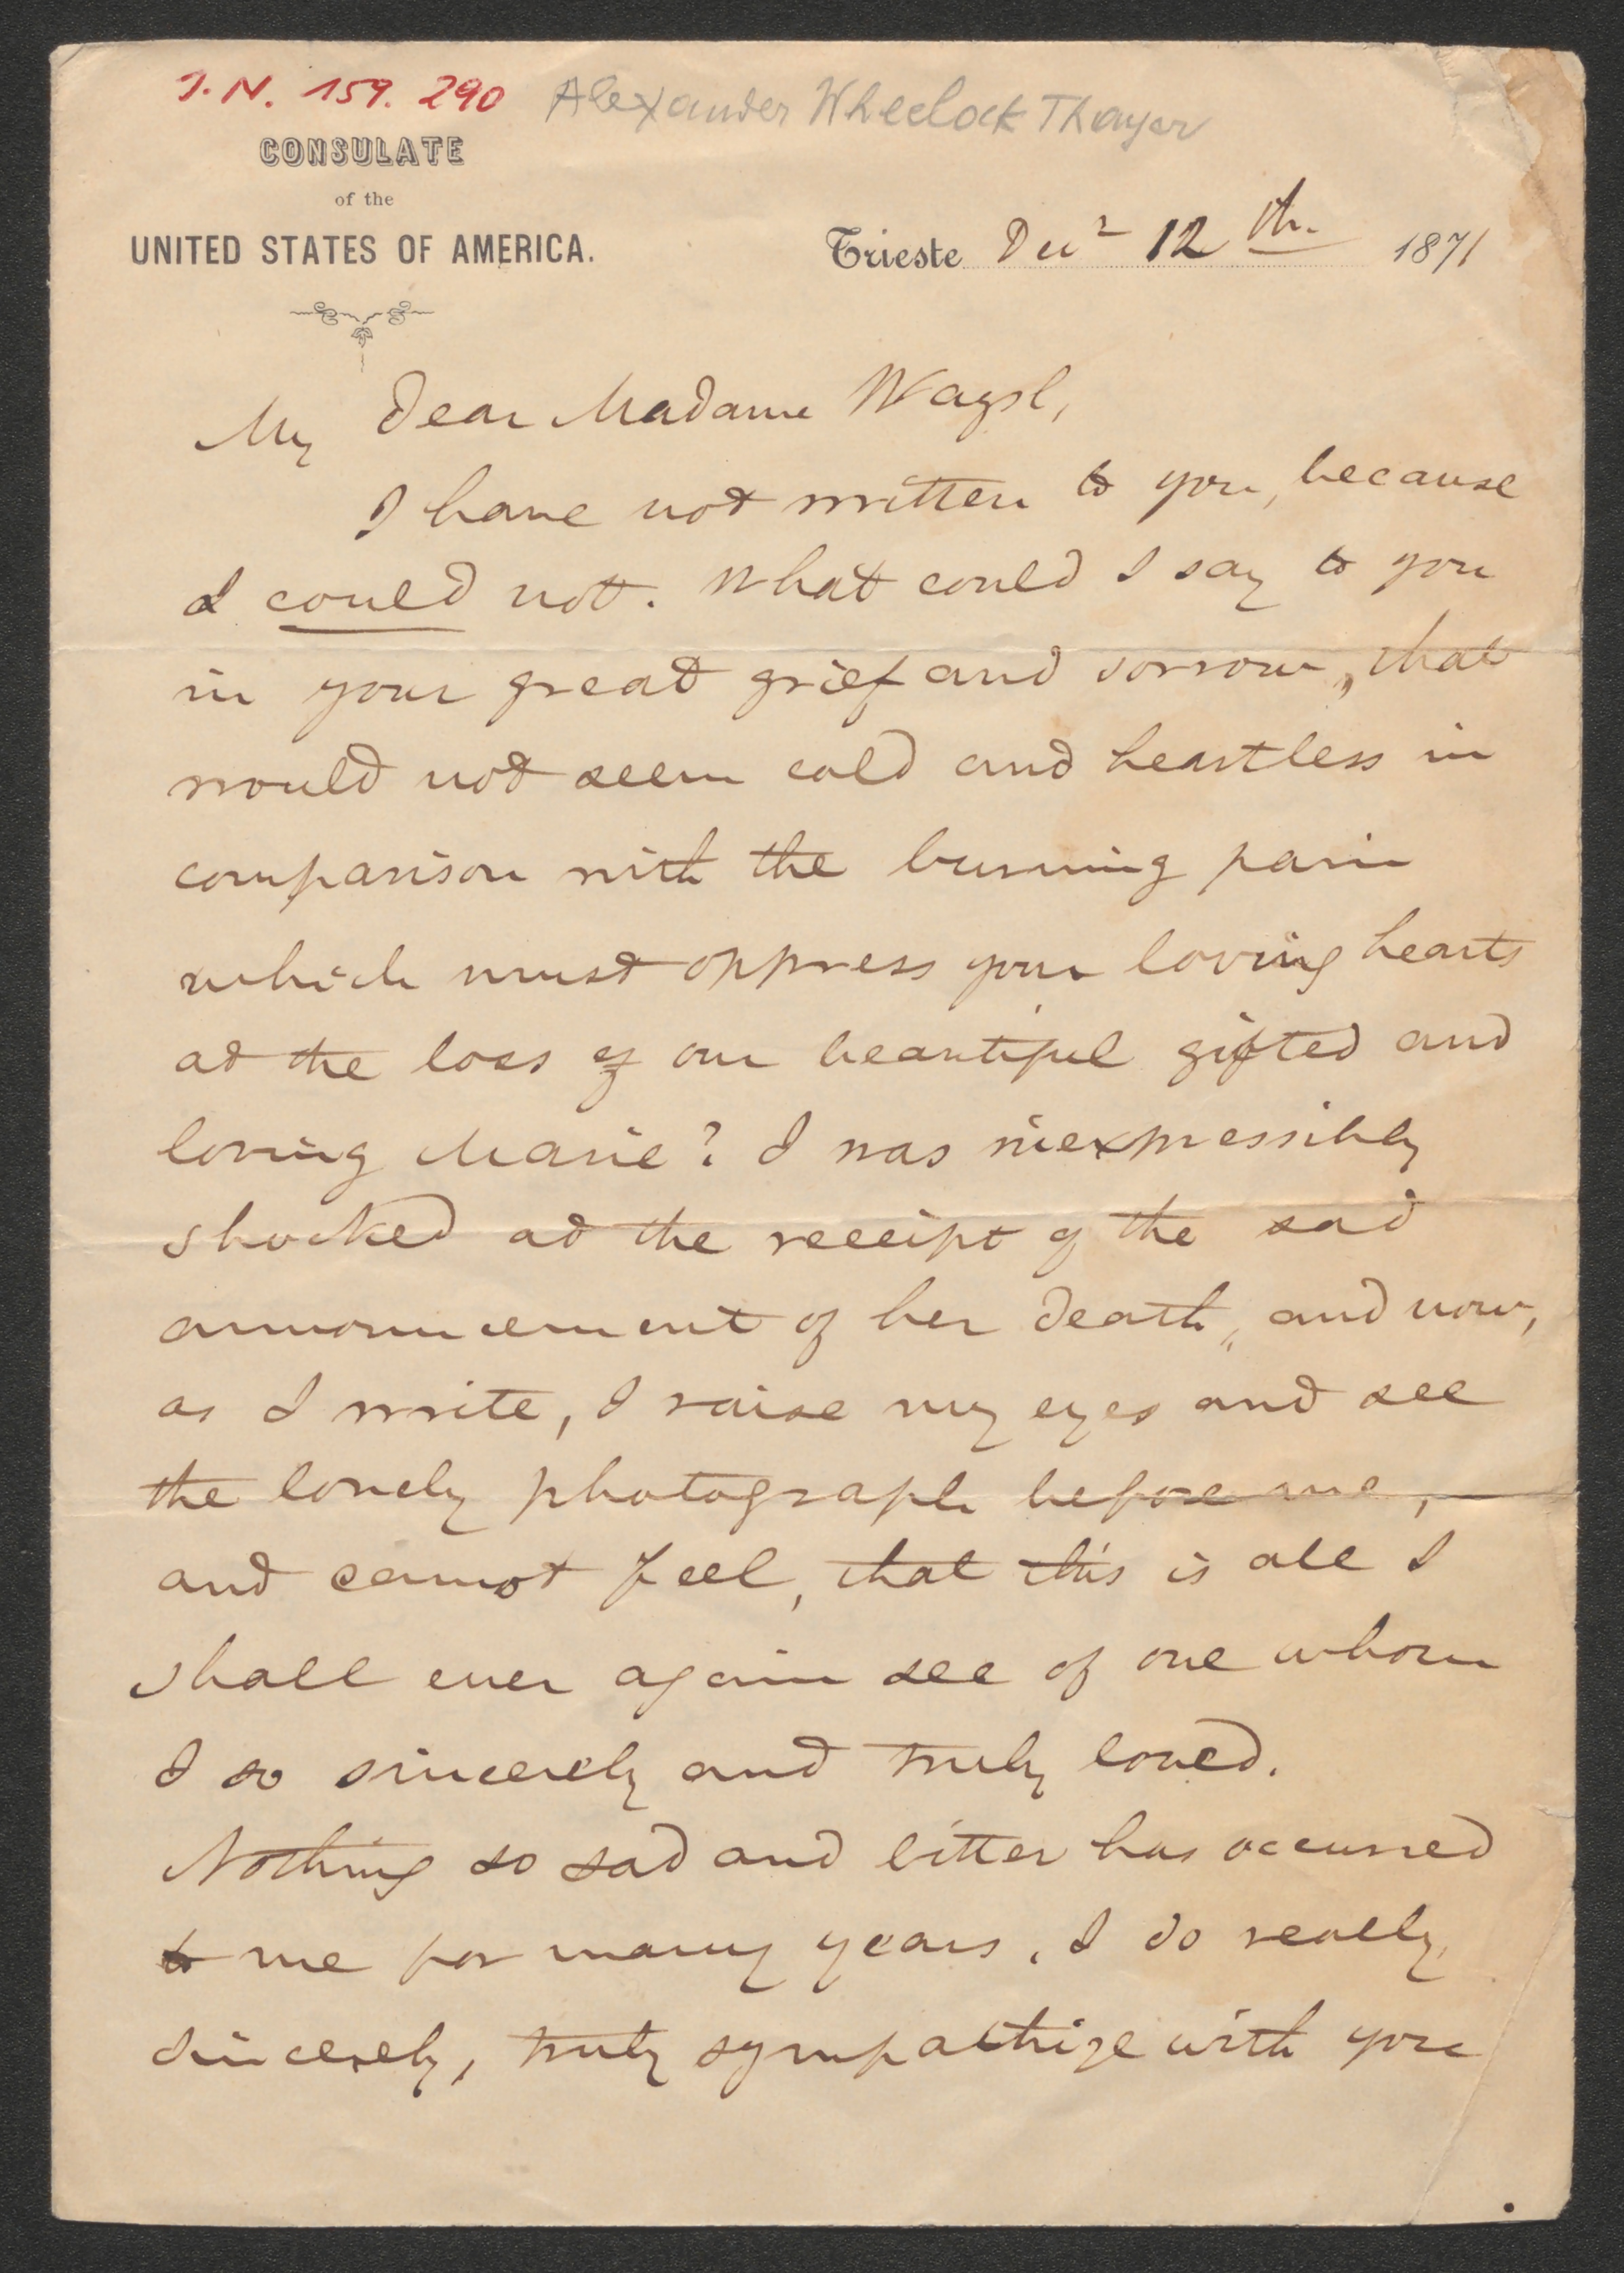 I.N. 159.290
Alexander Wheelock Thayer
CONSULATE
of the
UNITED STATES OF AMERICA.
Trieste Decr 12th 1871
My Dear Madame
I have not written to you, because
I could not. What could I say to you
in your great grief and sorrow, that
would not seem cold and heartless in
comparison with the burning pain
which must oppress your loving hearts
at the loss of our beautiful gifted and
loving Marie? I was inexpressibly
shocked at the receipt of the sad
announcement of her death, and now,
as I write, I raise my eyes and see
the lovely photograph before me,
and cannot feel, that this is all I
shall ever again see of one whom
I so sincerely and truly loved.
Nothing so sad and bitter has occurred
to me for many years. I do really,
sincerely, truly sympathize with you